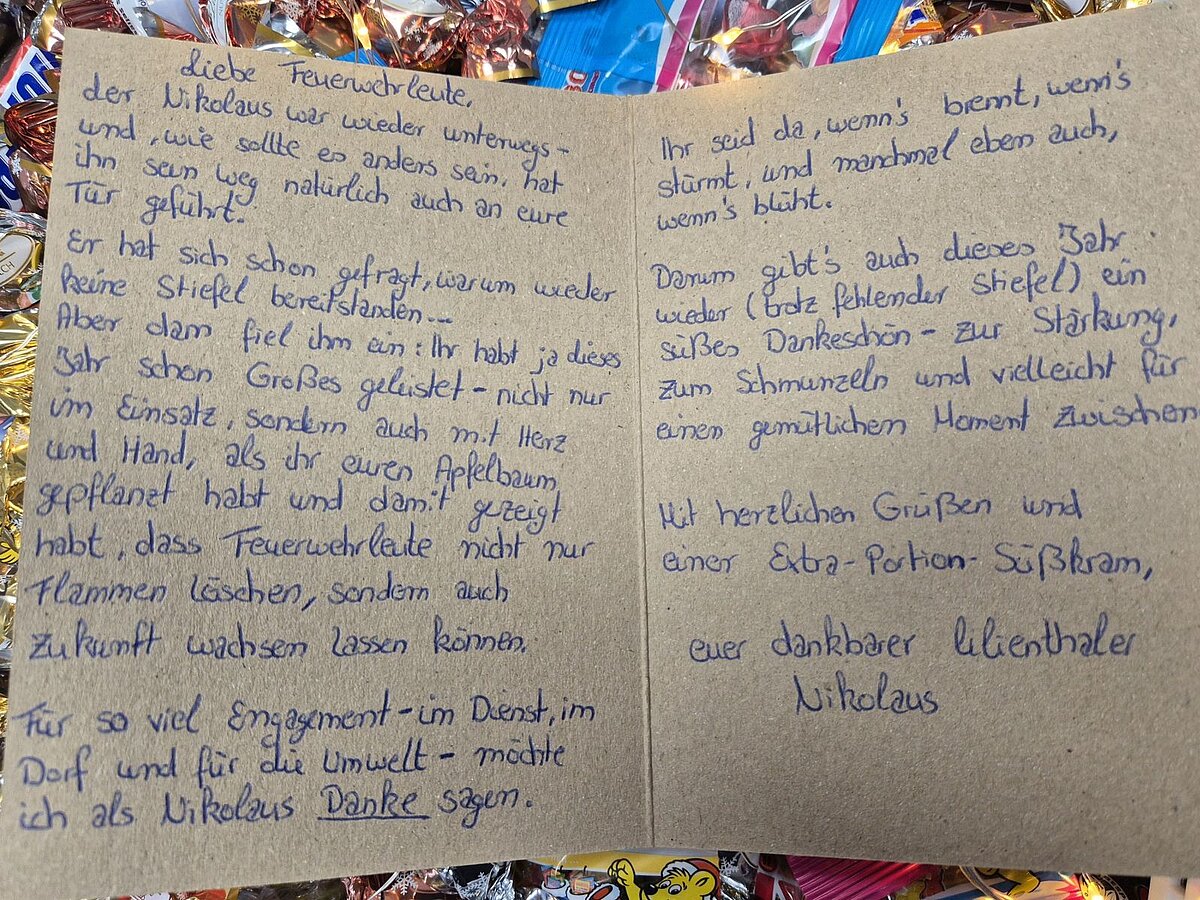 Liebe Feuerwehrleute,
der Nikolaus war wieder unterwegs -
und, wie sollte es anders sein, hat
ihn sein Weg natürlich auch an eure
Tür geführt.
Er hat sich schon gefragt, warum wieder
keine Stiefel bereitstanden...
Aber dann fiel ihm ein: Ihr habt ja dieses
Jahr schon Großes geleistet - nicht nur
im Einsatz, sondern auch mit Herz
und Hand, als ihr euren Apfelbaum
gepflanzt habt und damit gezeigt
habt, dass Feuerwehrleute nicht nur
Flammen löschen, sondern auch
Zukunft wachsen lassen können.
Für so viel Engagement - im Dienst, im
Dorf und für die Umwelt - möchte
ich als Nikolaus Danke sagen.
Ihr seid da, wenn's brennt, wenn's
stürmt, und manchmal eben auch,
wenn's blüht.
Darum gibt's auch dieses Jahr
wieder (trotz fehlender Stiefel) ein
süßes Dankeschön - zur Stärkung,
zum Schmunzeln und vielleicht für
einen gemütlichen Moment zwischen
Mit herzlichen Grüßen und
einer Extra-Portion-Süßkram,
euer dankbarer Lilienthaler
Nikolaus